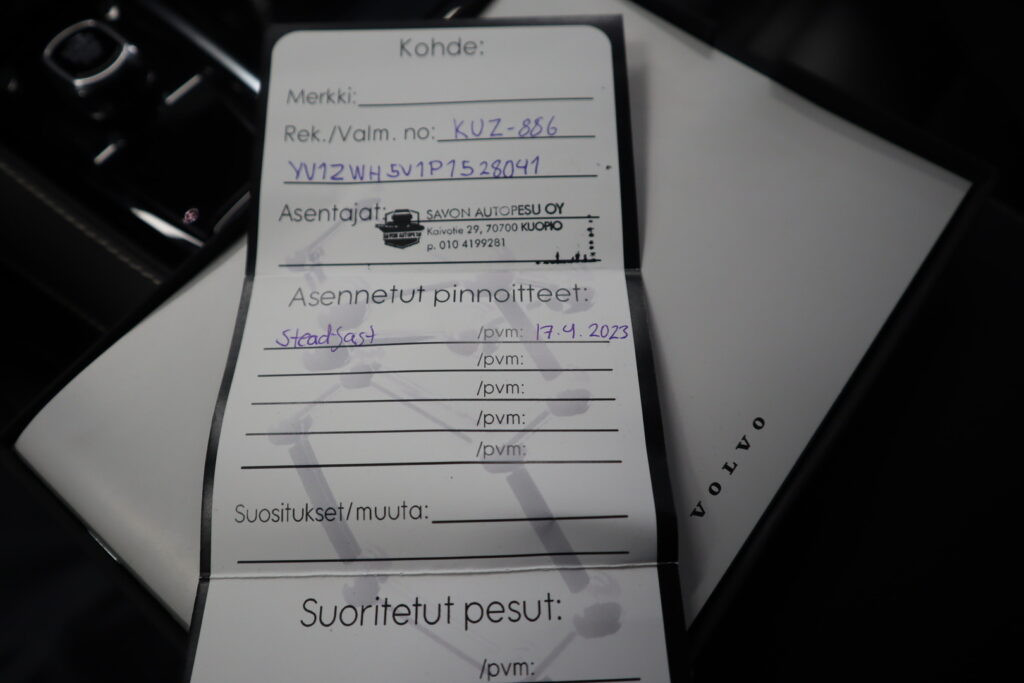 Kohde:
Merkki:
Rek./Valm. no: KUZ-886
YV1ZWH5V1P1528041
Asentajat:
SAVON AUTOPESU
SAVON AUTOPESU OY
Kaivotie 29, 70700 KUOPIO
p. 010 4199281
Asennetut pinnoitteet:
Steadfast /pvm: 17.4.2023
/pvm:
/pvm:
/pvm:
/pvm:
Suositukset/muuta:
Suoritetut pesut:
/pvm:
VOLVO